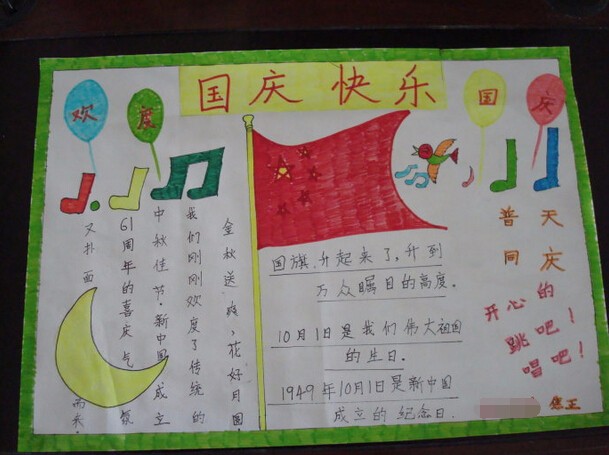 国庆快乐
欢度国庆
金秋送爽，花好月圆，
我们刚刚欢度了传统的
中秋佳节·新中国成立
61周年的喜庆气氛
又扑面而来·
国旗升起来了，升到
万众瞩目的高度。
10月1日是我们伟大祖国
的生日.
1949年10月1日是新中国
成立的纪念日.
普天
同庆
开心的
跳吧！
唱吧！